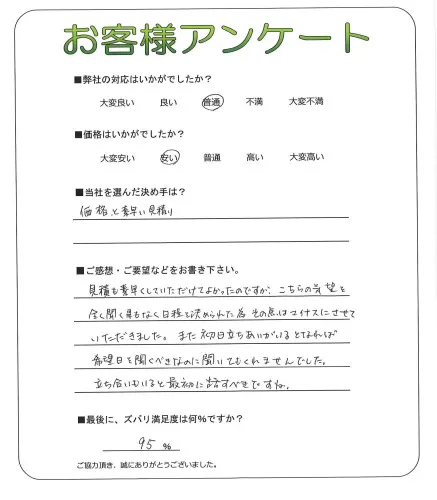 お客様アンケート
■弊社の対応はいかがでしたか？
大変良い 良い 普通 不満 大変不満
■価格はいかがでしたか？
大変安い 安い 普通 高い 大変高い
■当社を選んだ決め手は？
価格と素早い見積り
■ご感想・ご要望などをお書き下さい。
見積も素早くしていただけてよかったのですが、こちらの希望を
全く聞く事もなく日程を決められた為その点はマイナスにさせて
いただきました。また初日立ちあいがいるとなれば
希望日を聞くべきなのに聞いてもくれませんでした。
立ち合いもいると最初に話すべきですね。
■最後に、ズバリ満足度は何%ですか？
95 %
ご協力頂き、誠にありがとうございました。